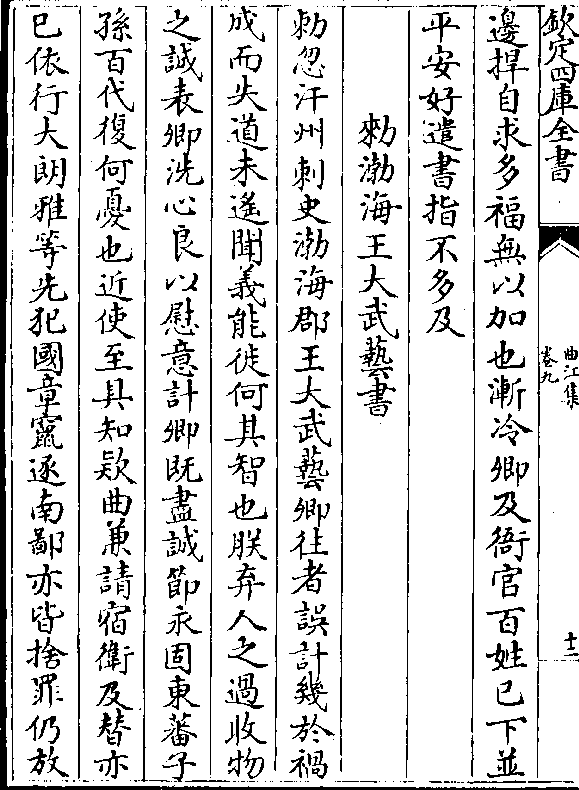 欽定四庫全書
曲江集
卷九
十二
邊捍自求多福無以加也漸冷卿及衙官百姓已下並
平安好遣書指不多及
勑渤海王大武藝書
勑忽汗州刺史渤海郡王大武藝卿往者誤計幾於禍
成而失道未遙聞義能徙何其智也朕弃人之過收物
之誠表卿洗心良以慰意計卿既盡誠節永固東蕃子
孫百代復何憂也近使至具知欵曲兼請宿衛及替亦
已依行大朗雅等先犯國章竄逐南鄙亦皆捨罪仍放